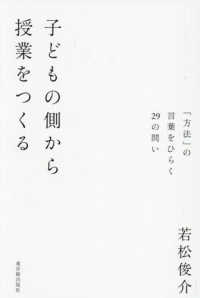 子どもの側から
授業をつくる
「方法」の
言葉をひらく
29の問い
若松俊介
東洋館出版社